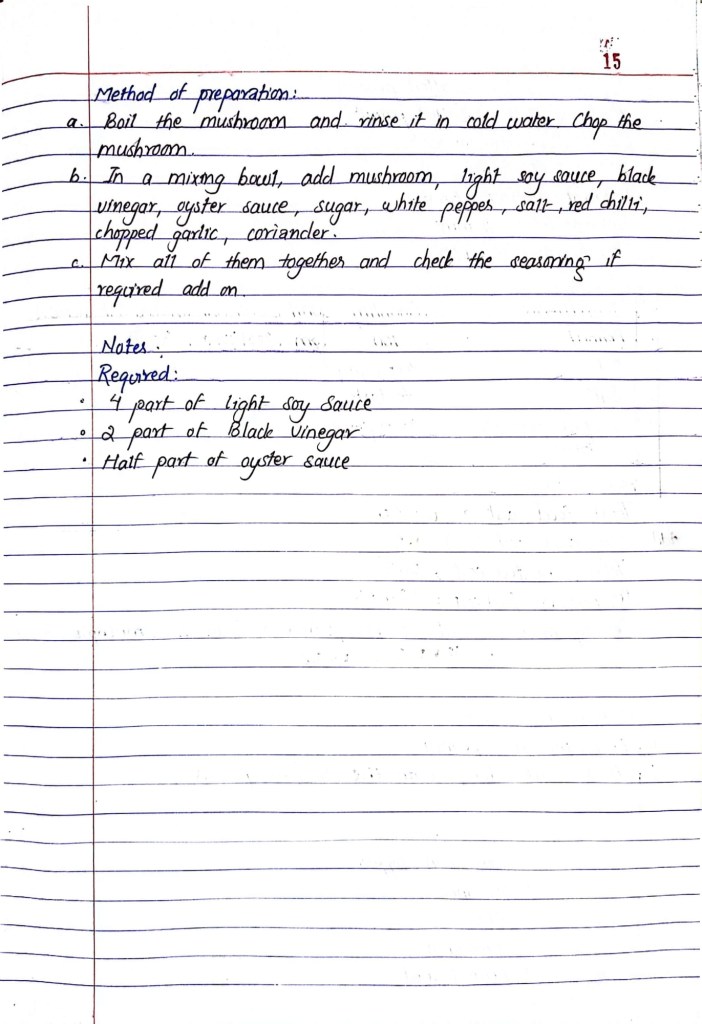 15
Method of preparation:
a. Boil the mushroom and rinse it in cold water. Chop the
mushroom.
b. In a mixing bowl, add mushroom, light soy sauce, black
vinegar, oyster sauce, sugar, white pepper, salt, red chilli,
chopped garlic, coriander.
c. Mix all of them together and check the seasoning if
required add on.
Notes:
Required:
• 4 part of light soy sauce
• 2 part of Black Vinegar
• Half part of oyster sauce